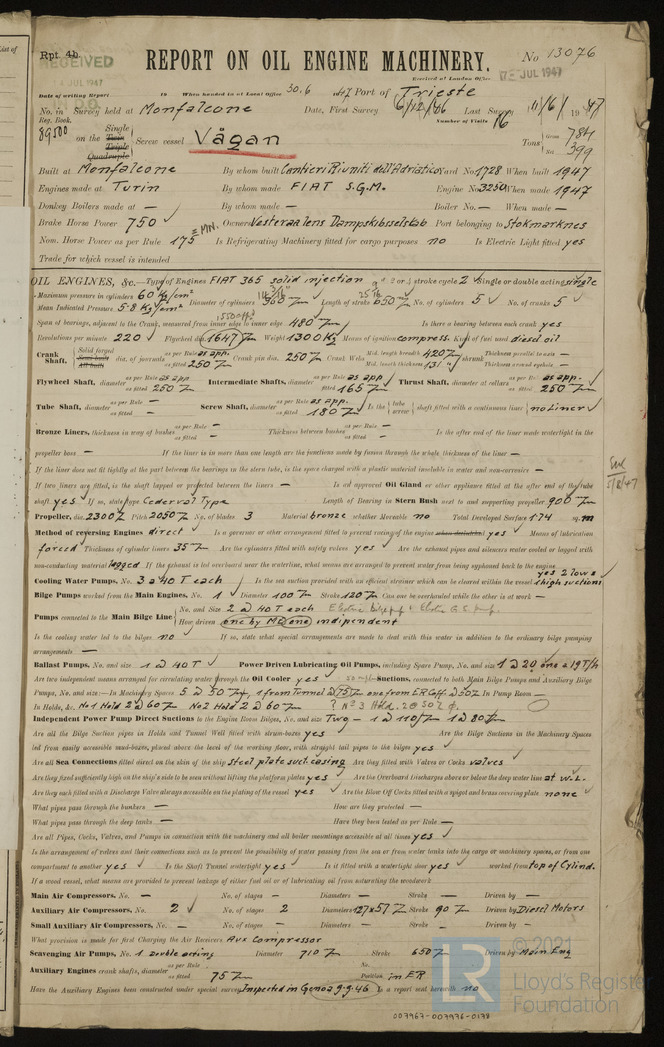 Rpt. 4b.
RECEIVED
JUL 1947
REPORT ON OIL ENGINE MACHINERY.
No 13076
Received at London Office
17 JUL 1947
Date of writing Report 19 When handed in at Local Office 30.6 1947 Port of Trieste
No. in Survey held at Monfalcone Date, First Survey 6/12/46 Last Survey 11/6/ 1947
Reg. Book. Number of Visits 16
89500 on the Single Twin Triple Quadruple Screw vessel Vågan Tons Gross 784 Net 399
Built at Monfalcone By whom built Cantieri Riuniti dell'Adriatico Yard No. 1728 When built 1947
Engines made at Turin By whom made FIAT S.G.M. Engine No. 3250 When made 1947
Donkey Boilers made at — By whom made — Boiler No. — When made —
Brake Horse Power 750 Owners Vesteraalens Dampskibsselskab Port belonging to Stokmarknes
Nom. Horse Power as per Rule 175 = MN. Is Refrigerating Machinery fitted for cargo purposes no Is Electric Light fitted yes
Trade for which vessel is intended
OIL ENGINES, &c.—Type of Engines FIAT 365 solid injection 2 or 4 stroke cycle 2 Single or double acting single
Maximum pressure in cylinders 60 Kg/cm² Diameter of cylinders Length of stroke 650 No. of cylinders 5 No. of cranks 5
Mean Indicated Pressure 5.8 Kg/cm²
Span of bearings, adjacent to the Crank, measured from inner edge to inner edge 480 Is there a bearing between each crank yes
Revolutions per minute 220 Flywheel dia. 1647 Weight 1300 Kg Means of ignition compress. Kind of fuel used diesel oil
Crank Shaft, Solid forged Semi built All built dia. of journals as per Rule as app. as fitted 250 Crank pin dia. 250 Crank Webs Mid. length breadth 420 Mid. length thickness 131 shrunk Thickness parallel to axis — Thickness around eyehole —
Flywheel Shaft, diameter as per Rule as app as fitted 250 Intermediate Shafts, diameter as per Rule as app fitted 165 Thrust Shaft, diameter at collars as per Rule as app. as fitted 250
Tube Shaft, diameter as per Rule — as fitted — Screw Shaft, diameter as per Rule as app. as fitted 180 Is the tube screw shaft fitted with a continuous liner no liner
Bronze Liners, thickness in way of bushes as per Rule — as fitted — Thickness between bushes as per Rule — as fitted — Is the after end of the liner made watertight in the
propeller boss — If the liner is in more than one length are the junctions made by fusion through the whole thickness of the liner —
If the liner does not fit tightly at the part between the bearings in the stern tube, is the space charged with a plastic material insoluble in water and non-corrosive —
If two liners are fitted, is the shaft lapped or protected between the liners — Is an approved Oil Gland or other appliance fitted at the after end of the tube
shaft yes If so, state type Cederval Type Length of Bearing in Stern Bush next to and supporting propeller 900
Propeller, dia. 2300 Pitch 2050 No. of blades 3 Material bronze whether Moveable no Total Developed Surface 1.74 sq. m
Method of reversing Engines direct Is a governor or other arrangement fitted to prevent racing of the engine when declutched yes Means of lubrication
forced Thickness of cylinder liners 35 Are the cylinders fitted with safety valves yes Are the exhaust pipes and silencers water cooled or lagged with
non-conducting material lagged If the exhaust is led overboard near the waterline, what means are arranged to prevent water from being syphoned back to the engine
Cooling Water Pumps, No. 3 a 40 T each Is the sea suction provided with an efficient strainer which can be cleared within the vessel yes 2 low & 1 high suctions
Bilge Pumps worked from the Main Engines, No. 1 Diameter 100 Stroke 120 Can one be overhauled while the other is at work —
Pumps connected to the Main Bilge Line No. and Size 2 a 40 T each
How driven one by ME one indipendent
Is the cooling water led to the bilges no If so, state what special arrangements are made to deal with this water in addition to the ordinary bilge pumping
arrangements —
Ballast Pumps, No. and size 1 a 40 T Power Driven Lubricating Oil Pumps, including Spare Pump, No. and size 1 a 20 one a 19 T/h
Are two independent means arranged for circulating water through the Oil Cooler yes Suctions, connected to both Main Bilge Pumps and Auxiliary Bilge
Pumps, No. and size:—In Machinery Spaces 5 a 50, 1 from Tunnel a 75 one from ER Coff. a 50 In Pump Room —
In Holds, &c. No 1 Hold 2 a 60 No 2 Hold 2 a 60 ? No 3 Hold. 2 @ 50
Independent Power Pump Direct Suctions to the Engine Room Bilges, No. and size Two - 1 a 110 1 a 80
Are all the Bilge Suction pipes in Holds and Tunnel Well fitted with strum-boxes yes Are the Bilge Suctions in the Machinery Spaces
led from easily accessible mud-boxes, placed above the level of the working floor, with straight tail pipes to the bilges yes
Are all Sea Connections fitted direct on the skin of the ship Steel plate suct. casing Are they fitted with Valves or Cocks valves
Are they fixed sufficiently high on the ship's side to be seen without lifting the platform plates yes Are the Overboard Discharges above or below the deep water line at w.l.
Are they each fitted with a Discharge Valve always accessible on the plating of the vessel yes Are the Blow Off Cocks fitted with a spigot and brass covering plate none
What pipes pass through the bunkers — How are they protected —
What pipes pass through the deep tanks — Have they been tested as per Rule —
Are all Pipes, Cocks, Valves, and Pumps in connection with the machinery and all boiler mountings accessible at all times yes
Is the arrangement of valves and their connections such as to prevent the possibility of water passing from the sea or from water tanks into the cargo or machinery spaces, or from one
compartment to another yes Is the Shaft Tunnel watertight yes Is it fitted with a watertight door yes worked from top of Cylind.
If a wood vessel, what means are provided to prevent leakage of either fuel oil or of lubricating oil from saturating the woodwork
Main Air Compressors, No. — No. of stages — Diameters — Stroke — Driven by —
Auxiliary Air Compressors, No. 2 No. of stages 2 Diameters 127x57 Stroke 90 Driven by Diesel Motors
Small Auxiliary Air Compressors, No. — No. of stages — Diameters — Stroke — Driven by —
What provision is made for first Charging the Air Receivers Aux Compressor
Scavenging Air Pumps, No. 1 Double acting Diameter 710 Stroke 650 Driven by Main Eng
Auxiliary Engines crank shafts, diameter as per Rule as fitted 75 No. Position in ER
Have the Auxiliary Engines been constructed under special survey Inspected in Genoa 9.9.46 Is a report sent herewith no
5/8/47
© 2021
LR
Lloyd's Register
Foundation
007967-007976-0178